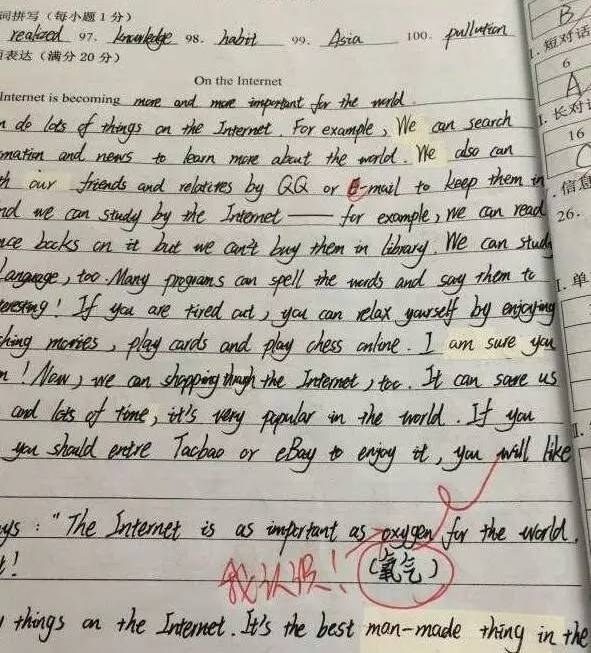 词拼写（每小题 1 分）
realized 97. knowledge 98. habit 99. Asia 100. pullution
表达（满分 20 分）
On the Internet
Internet is becoming more and more important for the world.
do lots of things on the Internet. For example, We can search
mation and news to learn more about the world. We also can
our friends and relatires by QQ or E-mail to keep them in
nd we can study by the Internet — for example, we can read
nce backs on it but we can't buy them in library. We can study
Language, too. Many programs can spell the words and say them to
teresting! If you are tired out, you can relax yourself by enjoying
ching movies, play cards and play chess online. I am sure you
n! Now, we can shopping through the Internet, too. It can save us
and lots of time, it's very popular in the world. If you
you should entre Taobao or eBay to enjoy it, you will like
ys: "The Internet is as important as oxygen for the world.
!
(氧气)
things on the Internet. It's the best man-made thing in the
B
短对话
6
A
长对话
16
C
信息
26.
I. 单